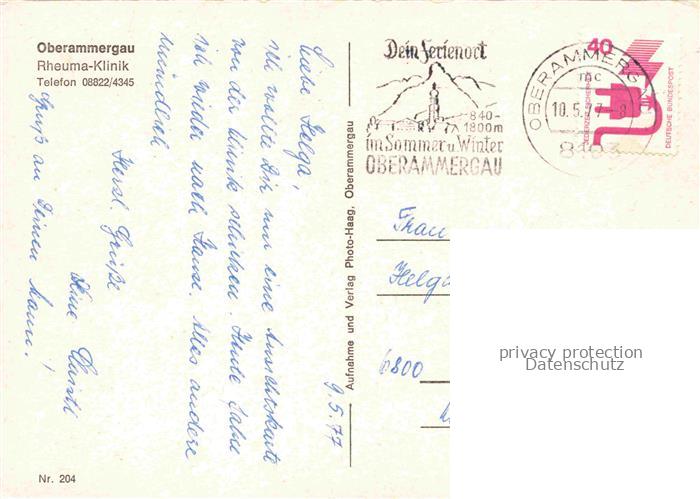 Oberammergau
Rheuma-Klinik
Telefon 08822/4345
9.5.77
Liebe Helga,
ich wollte Dir nur eine Ansichtskarte
von der Klinik schicken. Heute fahre
ich wieder nach Hause. Alles andere
mündlich
Herzl. Grüße
Deine Christl
Gruß an Deinen Mann!
Nr. 204
Aufnahme und Verlag Photo-Haag, Oberammergau
Dein Ferienort
840-
1800m
im Sommer u. Winter
OBERAMMERGAU
OBERAMMERG
mc
10.5.77-8
8103
40
DEUTSCHE BUNDESPOST
Frau
Helga
6800
privacy protection
Datenschutz